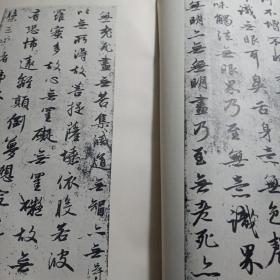 耳鼻舌身
味觸法無眼界乃至無意識界
無明亦無無明盡乃至無老死亦
無老死盡無苦集滅道無智亦無
以無所得故菩提薩埵依般若波
羅蜜多故心無罣礙無罣礙故無
有恐怖遠離顛倒夢想究
槃三世諸佛